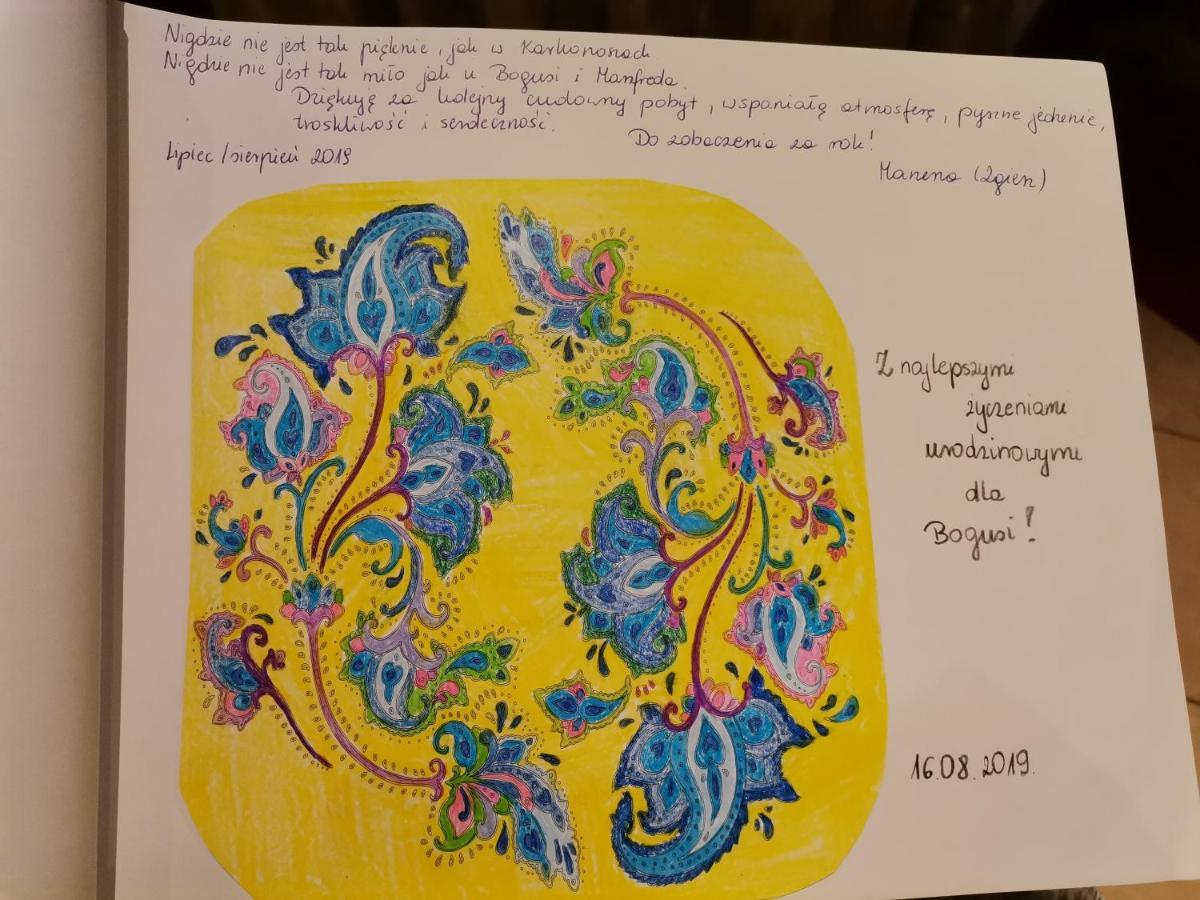 Nigdzie nie jest tak pięknie, jak w Karkonoszach
Nigdzie nie jest tak miło jak u Bogusi i Manfreda.
Dziękuję za kolejny cudowny pobyt, wspaniałą atmosferę, pyszne jedzenie,
troskliwość i serdeczność. Do zobaczenia za rok!
Lipiec/sierpień 2019
(Zgierz)
Z najlepszymi
życzeniami
urodzinowymi
dla
Bogusi!
16.08.2019.